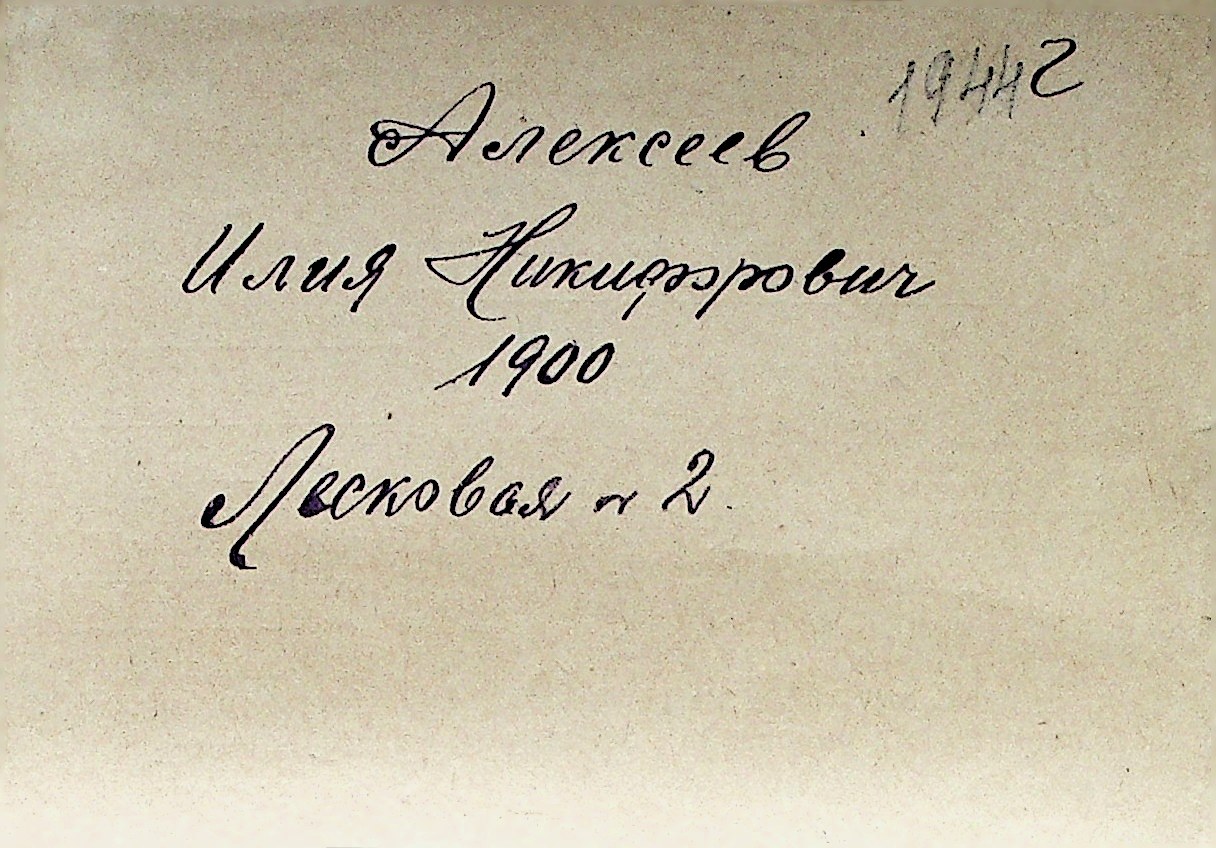 1944 г
Алексеев
Илия Никифорович
1900
Лесковая № 2.